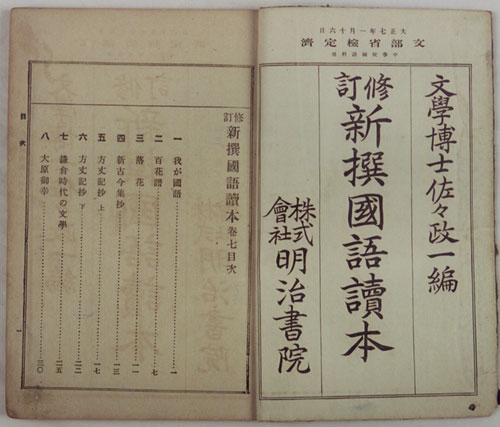 大正七年一月十六日
文部省檢定濟
中學校國語科用
文學博士佐々政一編
修訂 新撰國語讀本
株式會社 明治書院
修訂 新撰國語讀本 卷七目次
一 我が國語……一
二 百花譜……七
三 落花……一一
四 新古今集抄……一三
五 方丈記抄 上……一七
六 方丈記抄 下……二二
七 鎌倉時代の文學……二五
八 大原御幸……三〇
目次
一